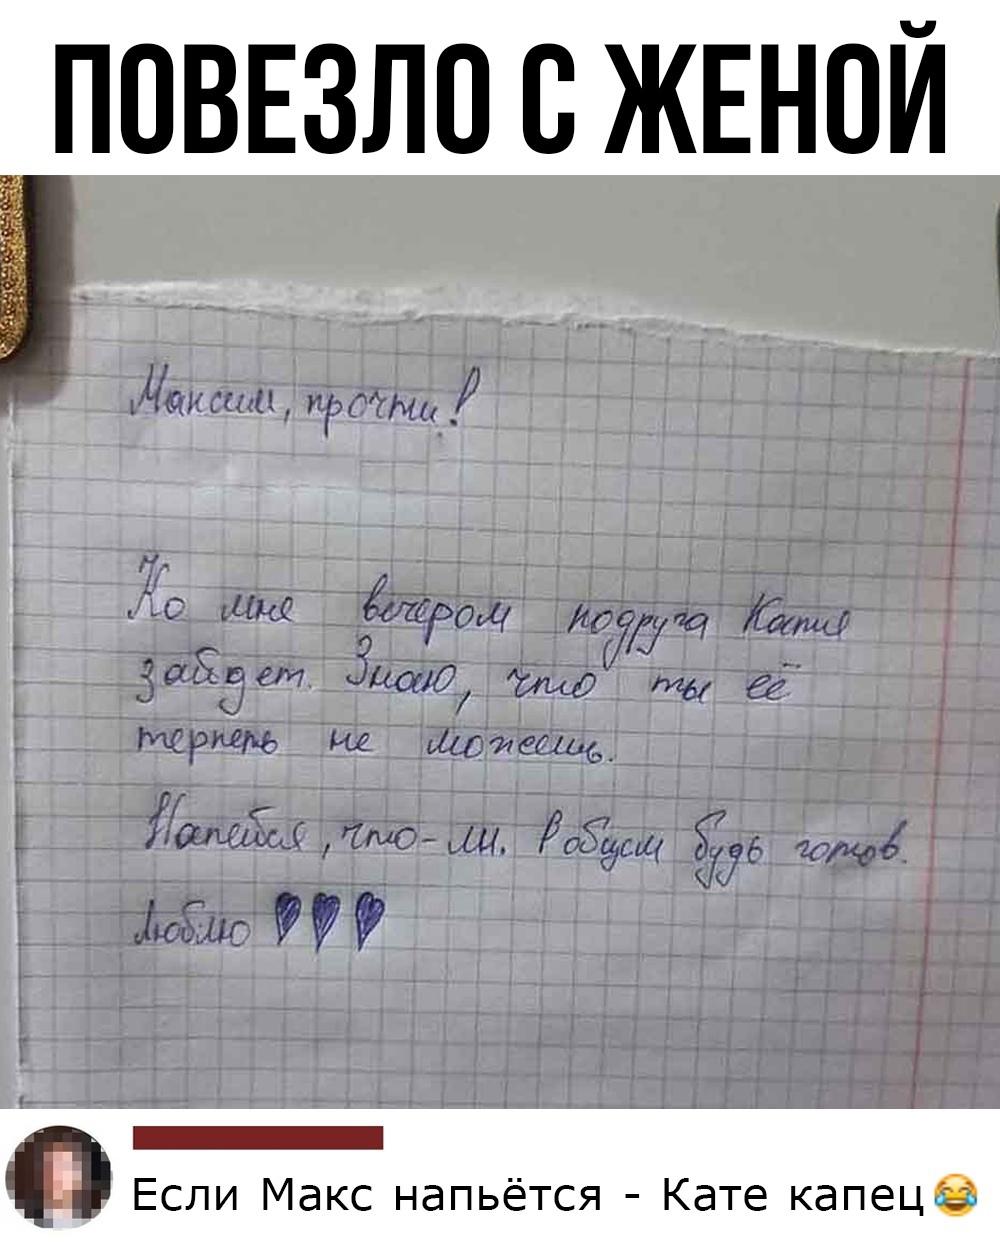 ПОВЕЗЛО С ЖЕНОЙ
Максим, прочти!
Ко мне вечером подруга Катя
зайдет. Знаю, что ты её
терпеть не можешь.
Напейся, что-ли. Робуси будь готов.
Люблю
Если Макс напьётся - Кате капец